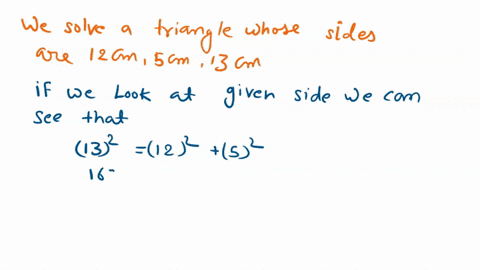 We solve a triangle whose sides
are 12cm, 5cm, 13cm
if we look at given side we can
see that
(13)² = (12)² + (5)²
16